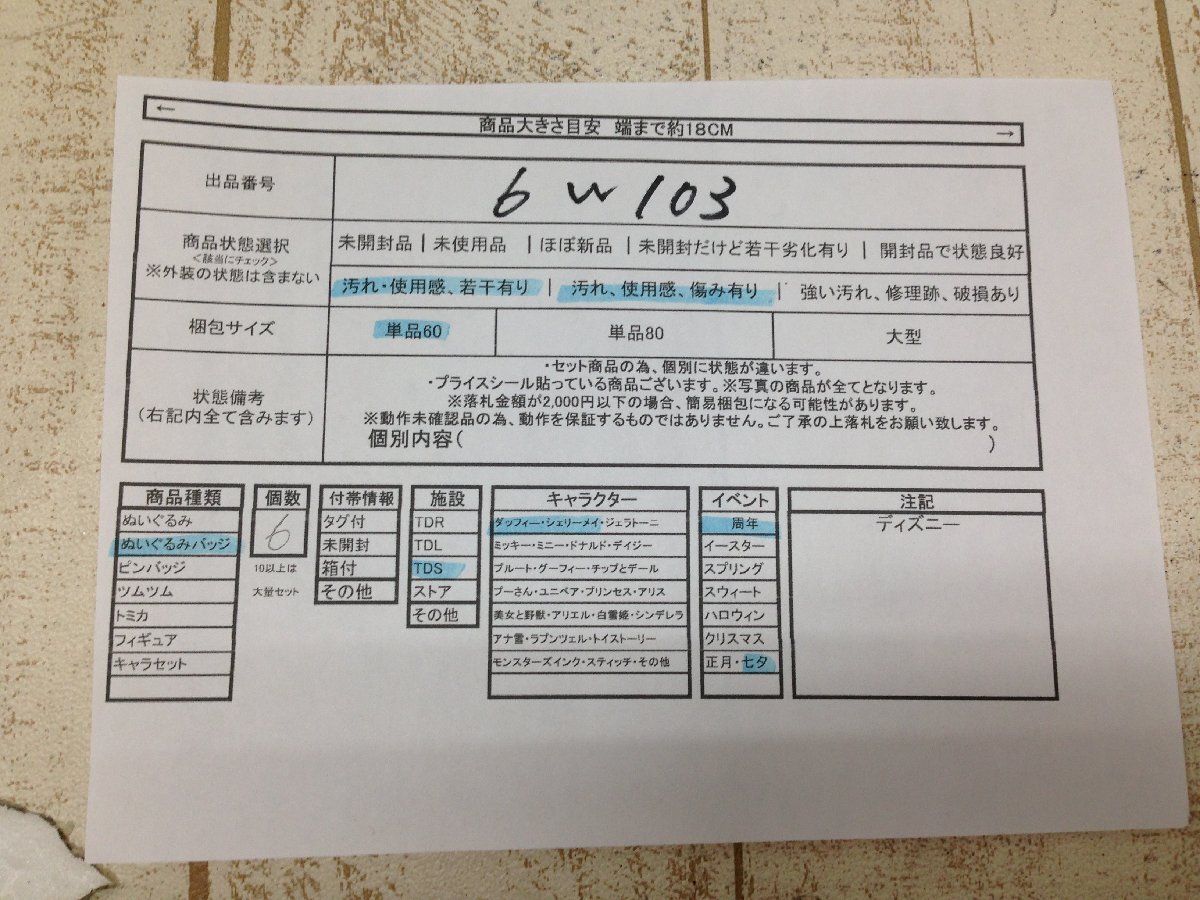 ← 商品大きさ目安 端まで約18CM →
出品番号 6w103
商品状態選択
<該当にチェック>
※外装の状態は含まない
未開封品 | 未使用品 | ほぼ新品 | 未開封だけど若干劣化有り | 開封品で状態良好
汚れ・使用感、若干有り | 汚れ、使用感、傷み有り | 強い汚れ、修理跡、破損あり
梱包サイズ 単品60 単品80 大型
状態備考
(右記内全て含みます)
・セット商品の為、個別に状態が違います。
・プライスシール貼っている商品ございます。※写真の商品が全てとなります。
※落札金額が2,000円以下の場合、簡易梱包になる可能性があります。
※動作未確認品の為、動作を保証するものではありません。ご了承の上落札をお願い致します。
個別内容( )
商品種類
ぬいぐるみ
ぬいぐるみバッジ
ピンバッジ
ツムツム
トミカ
フィギュア
キャラセット
個数
6
10以上は
大量セット
付帯情報
タグ付
未開封
箱付
その他
施設
TDR
TDL
TDS
ストア
その他
キャラクター
ダッフィー・シェリーメイ・ジェラトーニ
ミッキー・ミニー・ドナルド・デイジー
プルート・グーフィー・チップとデール
プーさん・ユニベア・プリンセス・アリス
美女と野獣・アリエル・白雪姫・シンデレラ
アナ雪・ラプンツェル・トイストーリー
モンスターズインク・スティッチ・その他
イベント
周年
イースター
スプリング
スウィート
ハロウィン
クリスマス
正月・七夕
注記
ディズニー